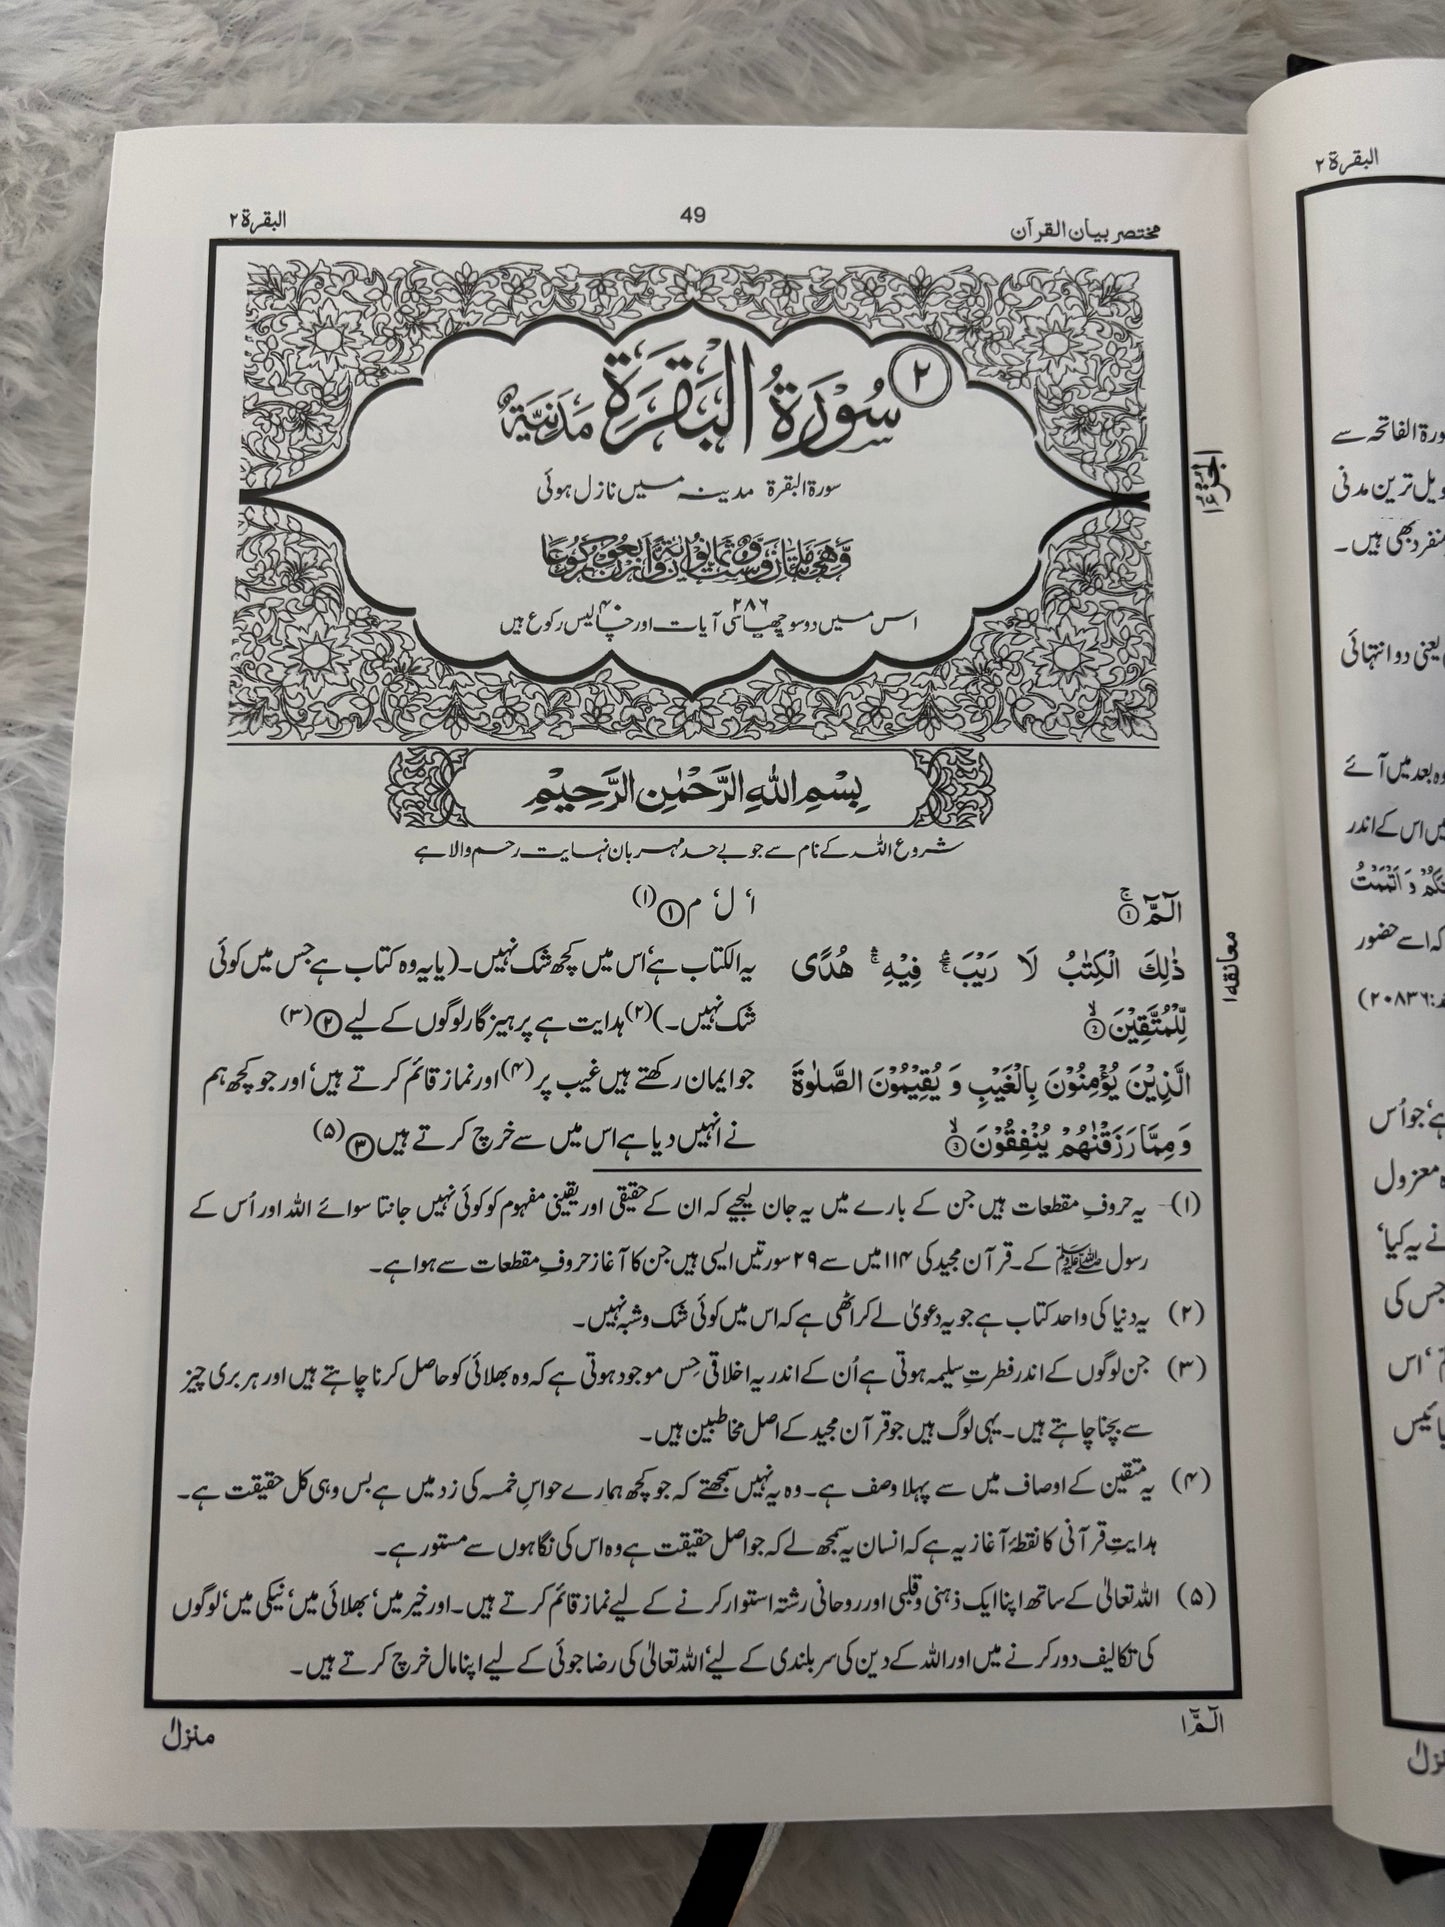 مختصر بیان القرآن
49
البقرۃ ۲
۲
سُوْرَةُ الْبَقَرَةِ مَدَنِيَّةٌ
سورۃ البقرۃ مدینہ میں نازل ہوئی
اس میں دو سو چھیاسی ۲۸۶ آیات اور چالیس ۴۰ رکوع ہیں
الجزء
بِسْمِ اللّٰهِ الرَّحْمٰنِ الرَّحِيْمِ
شروع اللہ کے نام سے جو بے حد مہربان نہایت رحم والا ہے
الٓمّٓ ۚ ۝1
ا‘ ل‘ م ۝۱ (۱)
ذٰلِكَ الْكِتٰبُ لَا رَيْبَ ۛ فِيْهِ ۛ هُدًى
یہ الکتاب ہے‘ اس میں کچھ شک نہیں۔ (یا یہ وہ کتاب ہے جس میں کوئی
لِّلْمُتَّقِيْنَ ۙ ۝2
شک نہیں۔) (۲) ہدایت ہے پرہیزگار لوگوں کے لیے ۝۲ (۳)
معانقه ۱
الَّذِيْنَ يُؤْمِنُوْنَ بِالْغَيْبِ وَ يُقِيْمُوْنَ الصَّلٰوةَ
جو ایمان رکھتے ہیں غیب پر (۴) اور نماز قائم کرتے ہیں‘ اور جو کچھ ہم
وَ مِمَّا رَزَقْنٰهُمْ يُنْفِقُوْنَ ۙ ۝3
نے انہیں دیا ہے اس میں سے خرچ کرتے ہیں ۝۳ (۵)
(۱)۔ یہ حروفِ مقطعات ہیں جن کے بارے میں یہ جان لیجیے کہ ان کے حقیقی اور یقینی مفہوم کو کوئی نہیں جانتا سوائے اللہ اور اُس کے
رسول ﷺ کے۔ قرآن مجید کی ۱۱۴ میں سے ۲۹ سورتیں ایسی ہیں جن کا آغاز حروفِ مقطعات سے ہوا ہے۔
(۲) یہ دنیا کی واحد کتاب ہے جو یہ دعویٰ لے کر اٹھی ہے کہ اس میں کوئی شک و شبہ نہیں۔
(۳) جن لوگوں کے اندر فطرتِ سلیمہ ہوتی ہے اُن کے اندر یہ اخلاقی حِس موجود ہوتی ہے کہ وہ بھلائی کو حاصل کرنا چاہتے ہیں اور ہر بری چیز
سے بچنا چاہتے ہیں۔ یہی لوگ ہیں جو قرآن مجید کے اصل مخاطبین ہیں۔
(۴) یہ متقین کے اوصاف میں سے پہلا وصف ہے۔ وہ یہ نہیں سمجھتے کہ جو کچھ ہمارے حواسِ خمسہ کی زد میں ہے بس وہی کل حقیقت ہے۔
ہدایتِ قرآنی کا نقطۂ آغاز یہ ہے کہ انسان یہ سمجھ لے کہ جو اصل حقیقت ہے وہ اس کی نگاہوں سے مستور ہے۔
(۵) اللہ تعالیٰ کے ساتھ اپنا ایک ذہنی و قلبی اور روحانی رشتہ استوار کرنے کے لیے نماز قائم کرتے ہیں۔ اور خیر میں‘ بھلائی میں‘ نیکی میں‘ لوگوں
کی تکالیف دور کرنے میں اور اللہ کے دین کی سربلندی کے لیے‘ اللہ تعالیٰ کی رضا جوئی کے لیے اپنا مال خرچ کرتے ہیں۔
الٓمّٓ ۱
منزل ۱
البقرۃ ۲
ورۃ الفاتحہ سے
ویل ترین مدنی
منفرد بھی ہیں۔
یعنی دو انتہائی
وہ بعد میں آئے
یں اس کے اندر
کہ اسے حضور
:۲۰۸۳۶)
ہے‘ جو اُس
ہ معزول
نے یہ کیا‘
جس کی
‘ اس